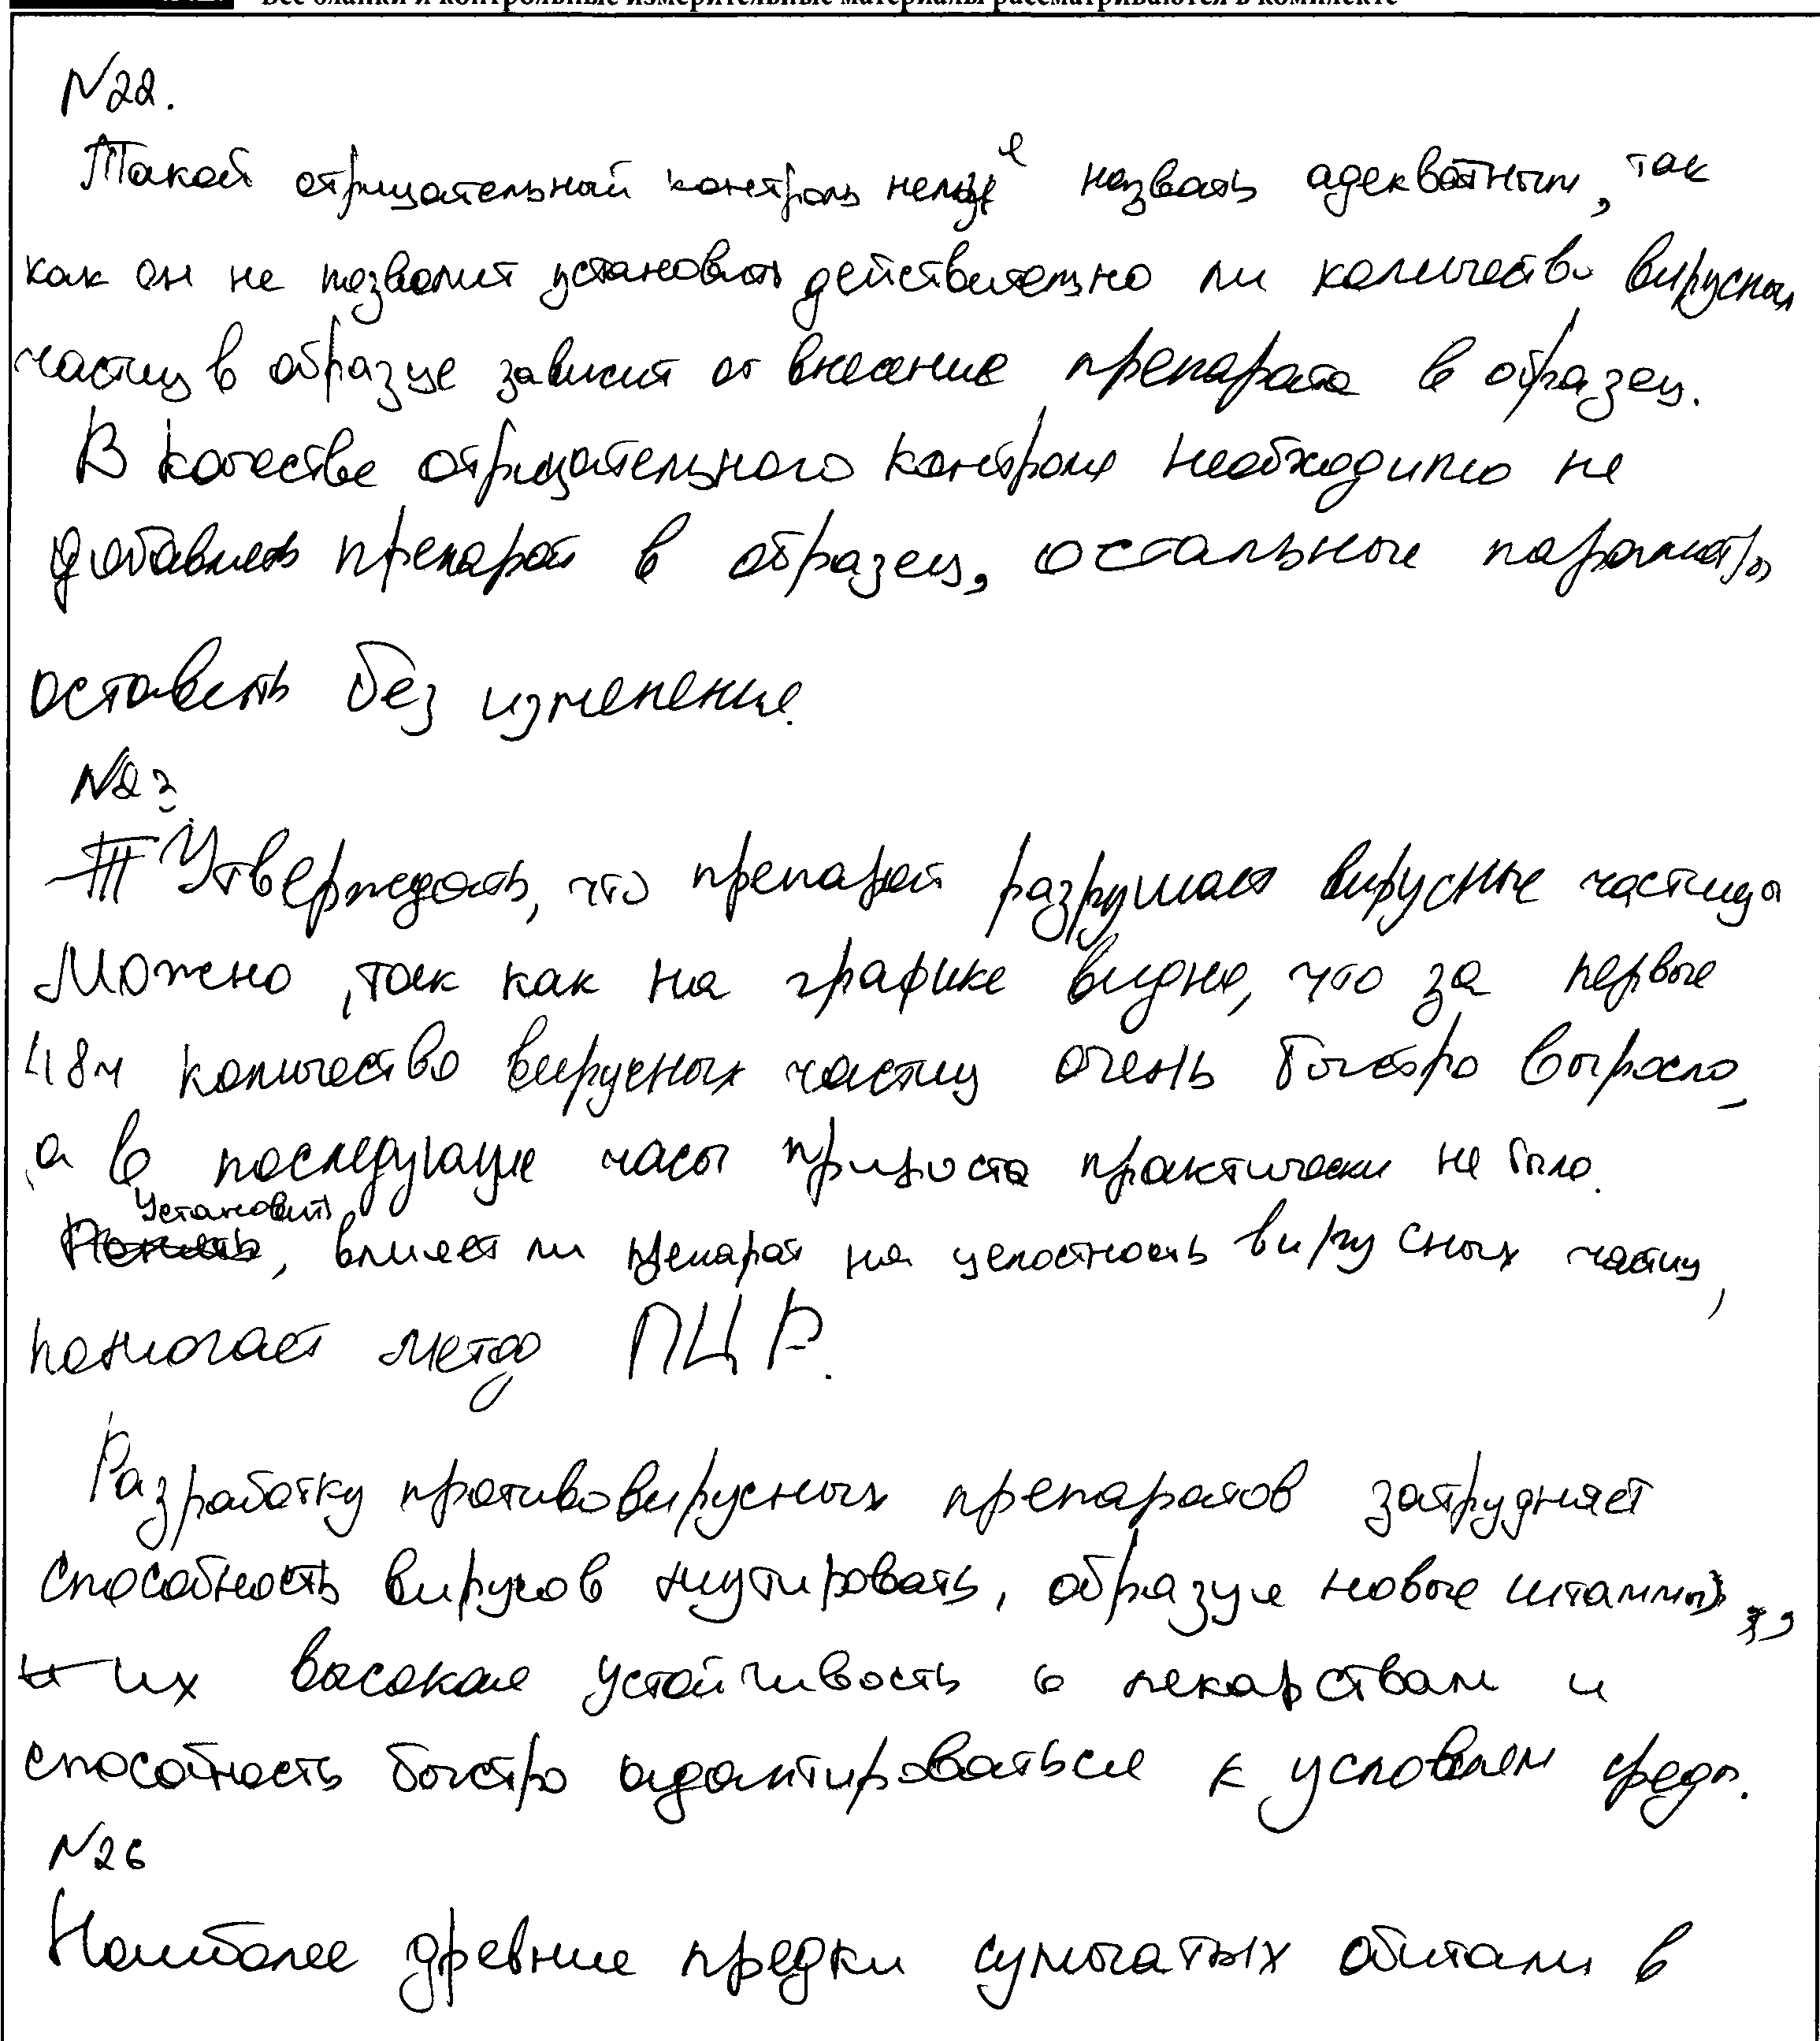 Все бланки и контрольные измерительные материалы рассматриваются в комплекте
N22.
Такой отрицательный контроль нельзя назвать адекватным, так
как он не позволит установить действительно ли количество вирусных
частиц в образце зависит от внесения препарата в образец.
В качестве отрицательного контроля необходимо не
добавлять препарат в образец, остальные параметры
оставить без изменения.
N23
Утверждать, что препарат разрушает вирусные частицы
можно, так как на графике видно, что за первые
48ч количество вирусных частиц очень быстро выросло,
а в последующие часы прироста практически не было.
Установить, влияет ли препарат на целостность вирусных частиц,
помогает метод ПЦР.
Разработку противовирусных препаратов затрудняет
способность вирусов мутировать, образуя новые штаммы,
их высокая устойчивость к лекарствам и
способность быстро адаптироваться к условиям среды.
N26
Наиболее древние предки сумчатых обитали в